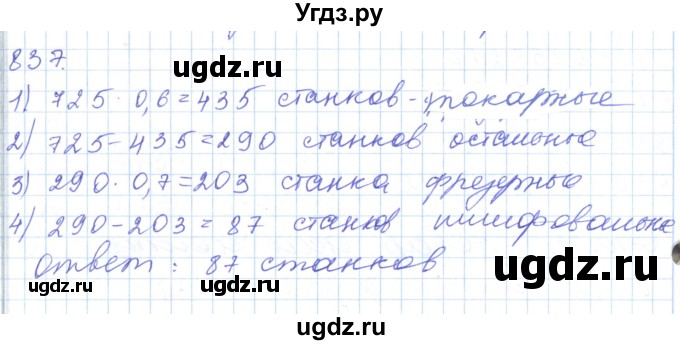 Угдз.ру
837.
ugdz.ru ugdz.ru
1) 725 · 0,6 = 435 станков - токарные
2) 725 - 435 = 290 станков остальные
ugdz.ru ugdz.ru
3) 290 · 0,7 = 203 станка фрезерные
4) 290 - 203 = 87 станков шлифовальные
ugdz.ru ugdz.ru
Ответ: 87 станков
ugdz.ru ugdz.ru